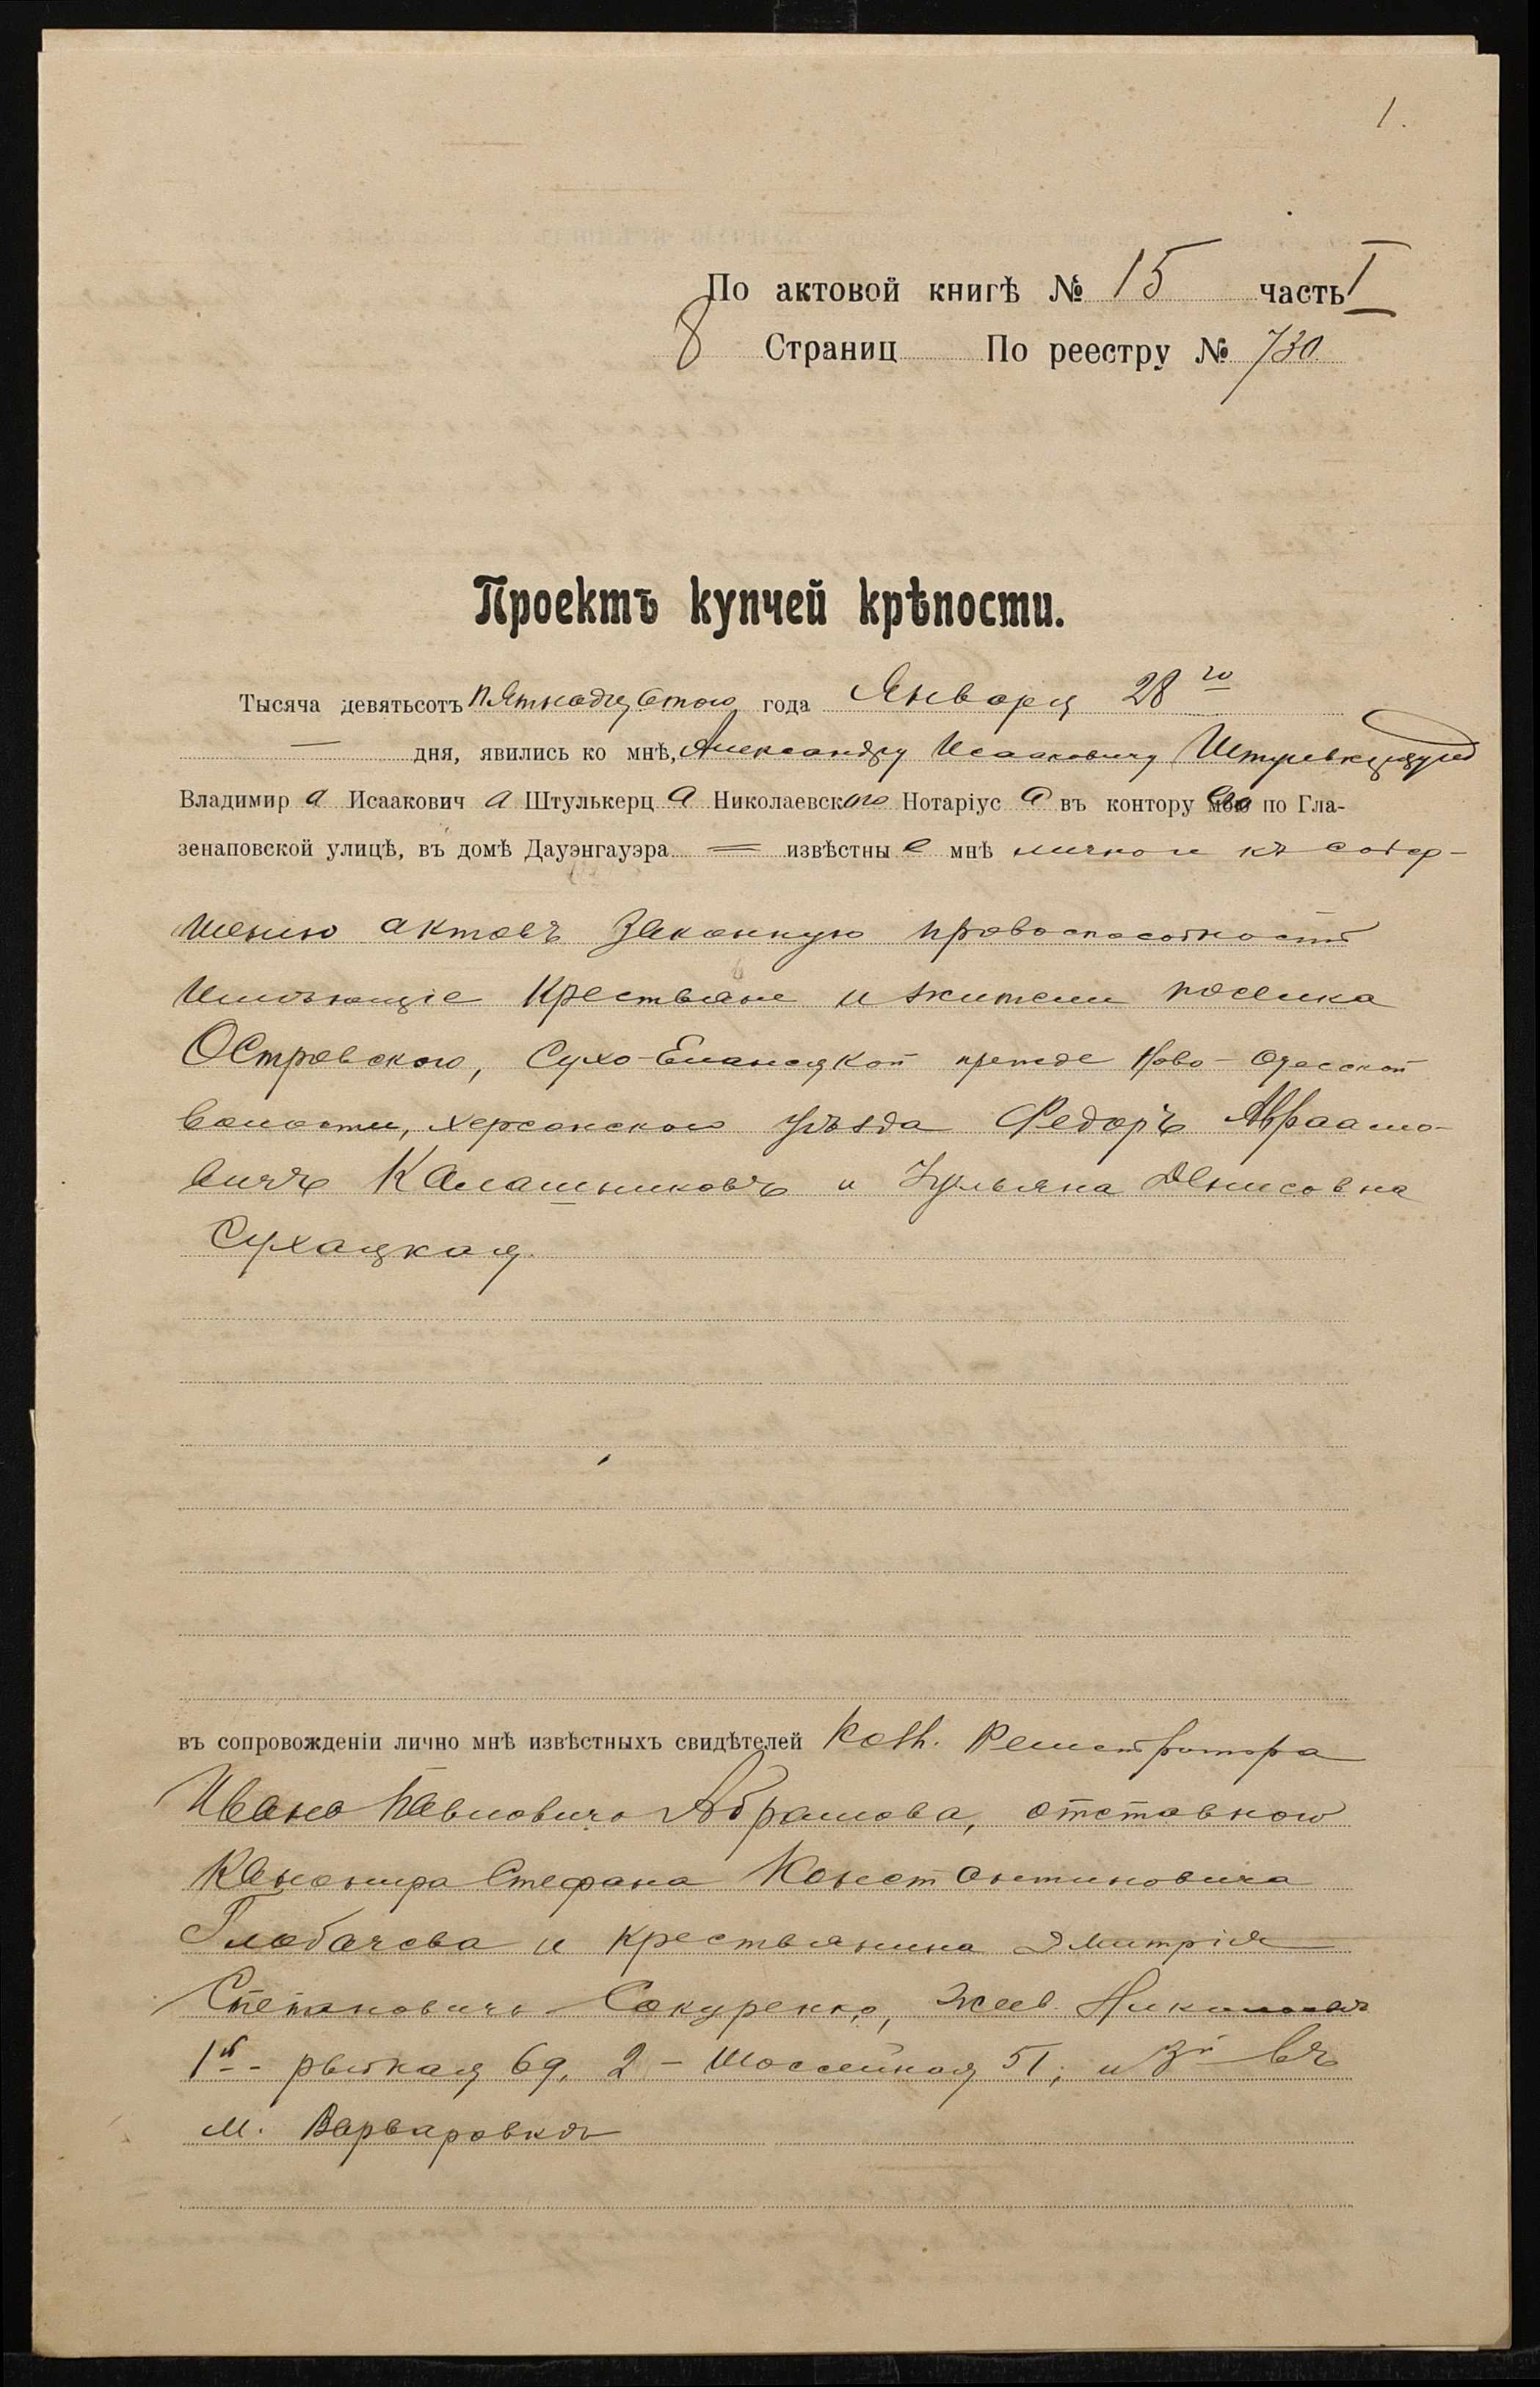 1.
По актовой книгѣ № 15 часть I
8 Страниц По реестру № 730.
Проектъ купчей крѣпости.
Тысяча девятьсотъ пятнадцатого года Января 28 го
— дня, явились ко мнѣ, Александру Исааковичу
Владимир а Исаакович а Штулькерц а Николаевск ого Нотаріус а въ контору его по Гла-
зенаповской улицѣ, въ домѣ Дауэнгауэра = извѣстны е мнѣ лично и къ совер-
шению актовъ законную правоспособность
имѣющіе крестьяне и жители поселка
Островского, Сухо-Еланецкой прежде Ново-Одесской
волости, Херсонского уѣзда Федоръ Авраамо-
вичъ Калашниковъ и Ульяна Денисовна
Сухацкая.
въ сопровожденіи лично мнѣ извѣстныхъ свидѣтелей Колл. Регистратора
Ивана Павловича Абрамова, отставного
Канонира Стефана Константиновича
Глобачева и крестьянина Дмитрія
Степановича Сокуренко, жив. Николаевъ
1й - рыбная 69, 2 - Шоссейная 51, и 3й въ
м. Варваровкѣ